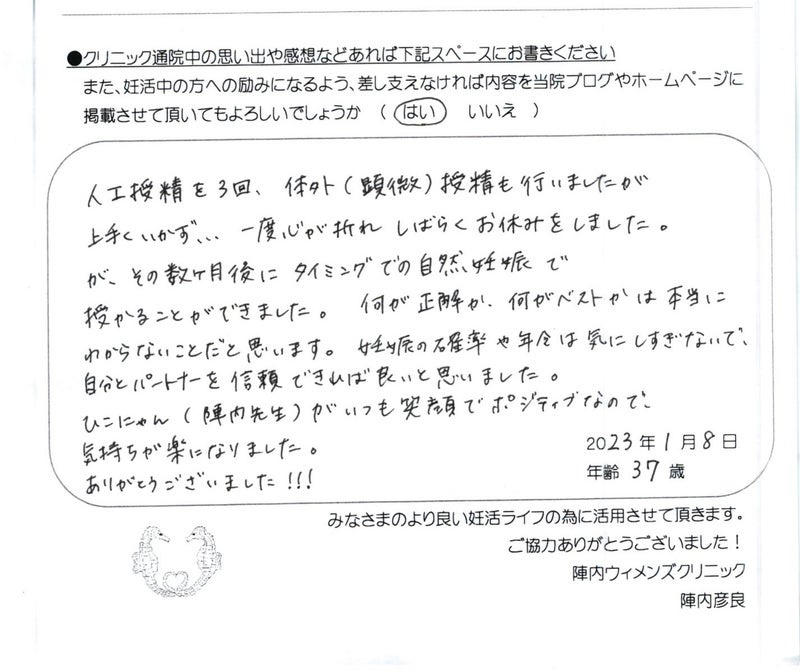 ●クリニック通院中の思い出や感想などあれば下記スペースにお書きください
また、妊活中の方への励みになるよう、差し支えなければ内容を当院ブログやホームページに
掲載させて頂いてもよろしいでしょうか （ はい　いいえ ）
人工授精を3回、体外(顕微)授精も行いましたが
上手くいかず、、、一度心が折れ しばらくお休みをしました。
が、その数ヶ月後に タイミングでの自然妊娠で
授かることができました。 何が正解か、何がベストかは本当に
わからないことだと思います。 妊娠の確率や年令は気にしすぎないで、
自分とパートナーを信頼できれば良いと思いました。
ひこにゃん(陣内先生)がいつも笑顔でポジティブなので、
気持ちが楽になりました。
ありがとうございました!!!
2023年1月8日
年齢 37歳
みなさまのより良い妊活ライフの為に活用させて頂きます。
ご協力ありがとうございました！
陣内ウィメンズクリニック
陣内彦良